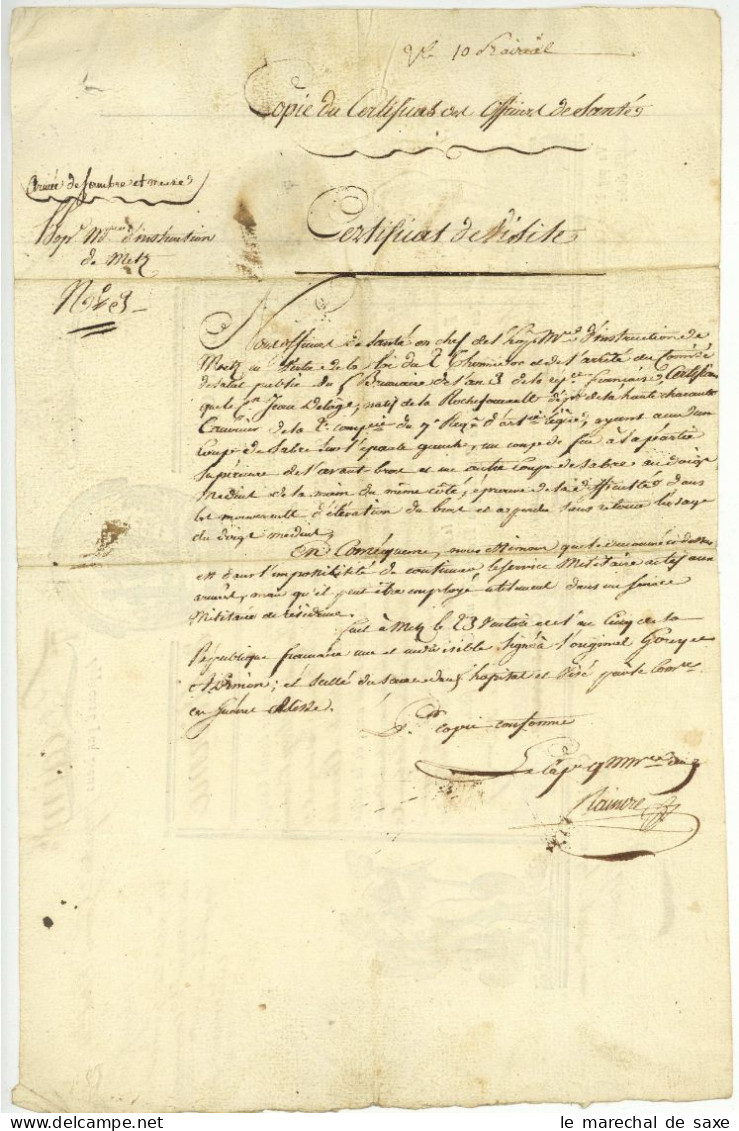 10
Copie du Certificat des officiers de Santé
Armée de Sambre et meuse
d'instruction
de Metz
Certificat de Visite
Nous officiers de Santé en chef de l'hop. d'instruction de
Metz en de la loi du 2 Thermidor et de l'arreté du Comité
de salut public du 5 Brumaire de l'an 3 de la française, Certifions
que le Jean Delage, natif de la Rochefoucault de la haute charante
de la 2e compie du 9e Regt d'artie legère, ayant eu un
Coup de Sabre sur l'epaule gauche, un coup de feu à la partie
Supérieure de l'avant-bras et un autre coup de sabre au doigt
medius de la main du même côté, éprouve de la difficulté dans
les mouvements d'élévation du bras et a perdu sans retour l'usage
du doigt medius,
En Conséquence, nous estimons que le
est dans l'impossibilité de continuer le service Militaire actif aux
armées, mais qu'il peut être employé utilement dans un service
Militaire de résidence.
fait à Metz le 23 de l'an Cinq de la
République francaise une et indivisible signé à l'original Gorcy et
; et scellé du sceau dud. hopital et visé par le Comre
des guerres
Pr. copie conforme
Le
le marechal de saxe